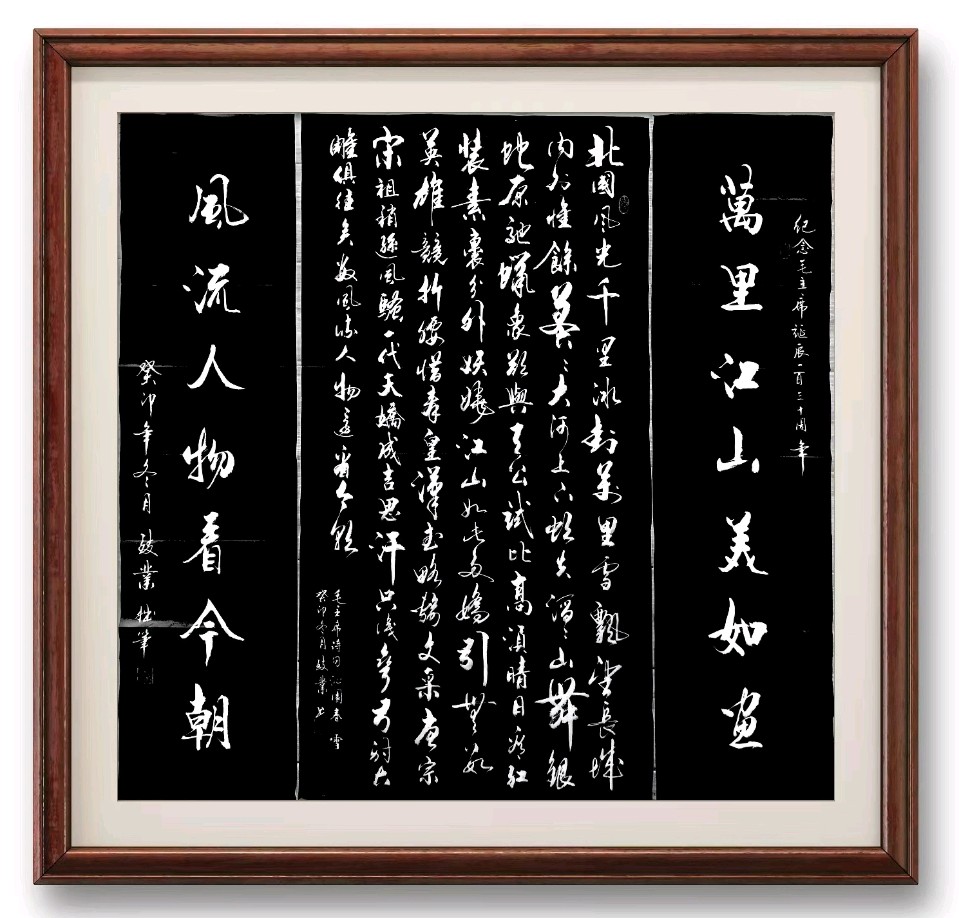 纪念毛主席誕辰一百三十周年
萬里江山美如画
北國風光千里冰封萬里雪飄望長城
内外惟餘莽〻大河上下頓失滔〻山舞銀
蛇原馳蠟象欲與天公試比高須晴日看紅
裝素裹分外妖嬈江山如此多嬌引無數
英雄競折腰惜秦皇漢武略輸文采唐宗
宋祖稍遜風騷一代天驕成吉思汗只識彎弓射大
雕俱往矣數風流人物還看今朝
毛主席詩詞沁園春雪
癸卯冬月敬業書
風流人物看今朝
癸卯年冬月敬業拙筆